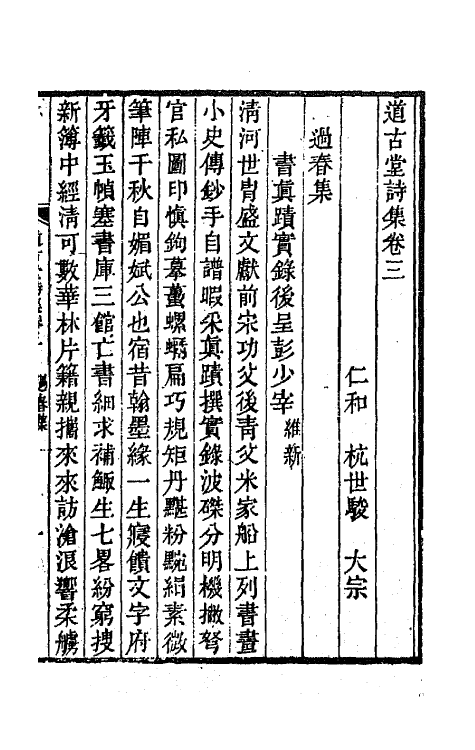 道古堂詩集卷三
仁和　杭世駿　大宗
過春集
書真蹟實錄後呈彭少宰維新
清河世胄盛文獻前宋功父後青父米家船上列書畫
小史傳鈔手自譜暇采真蹟撰實錄波磔分明機撇弩
官私圖印慎鉤摹蠆螺蠣扁巧規矩丹黮粉黦絹素微
筆陣千秋自媚娬公也宿昔翰墨緣一生寢饋文字府
牙籤玉幀塞書庫三館亡書細求補鯫生七畧紛窮搜
新簿中經清可數華林片籍親攜來來訪滄浪響柔艣